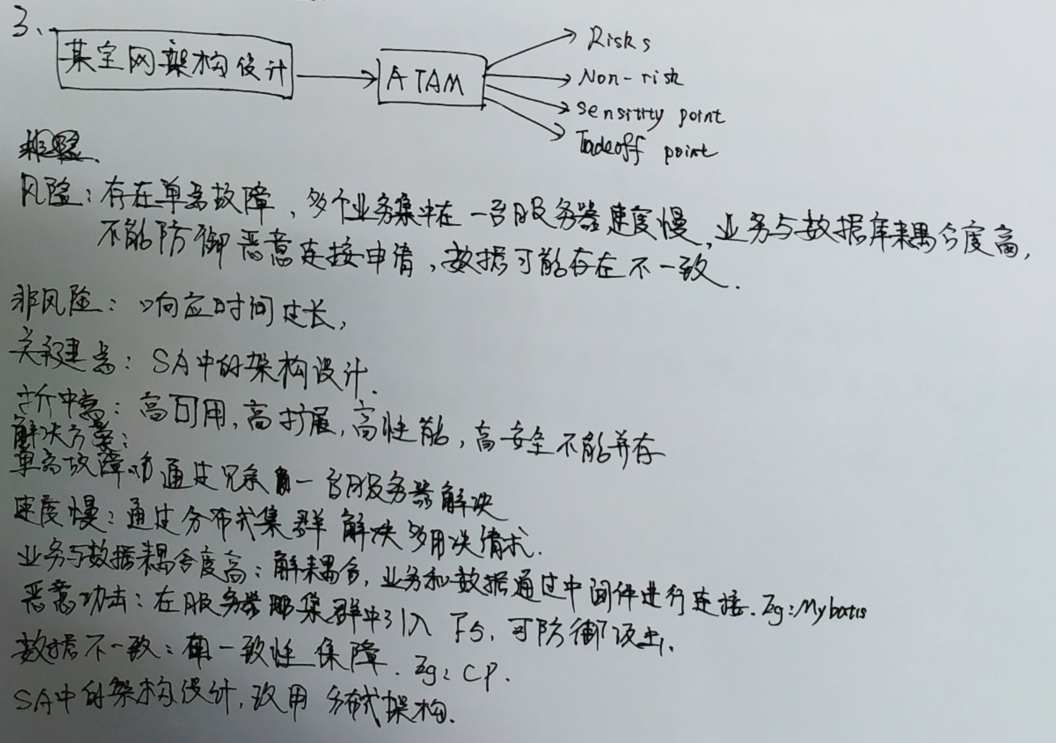 3、
某宝网架构设计
ATAM
Risks
Non-risk
Sensitity point
Tradeoff point
风险：存在单点故障，多个业务集中在一台服务器速度慢，业务与数据库耦合度高，
不能防御恶意连接申请，数据可能存在不一致.
非风险：响应时间过长，
关键点：SA中的架构设计.
折中点：高可用，高扩展，高性能，高安全不能并存
解决方案：
单点故障：通过冗余一台服务器解决
速度慢：通过分布式集群解决多用决请求.
业务与数据耦合度高：解耦合，业务和数据通过中间件进行连接.Eg：Mybatis
恶意功击：在服务器集群中引入 F5，可防御攻击.
数据不一致：用一致性保障.Eg：CP.
SA中的架构设计，改用分布式架构.